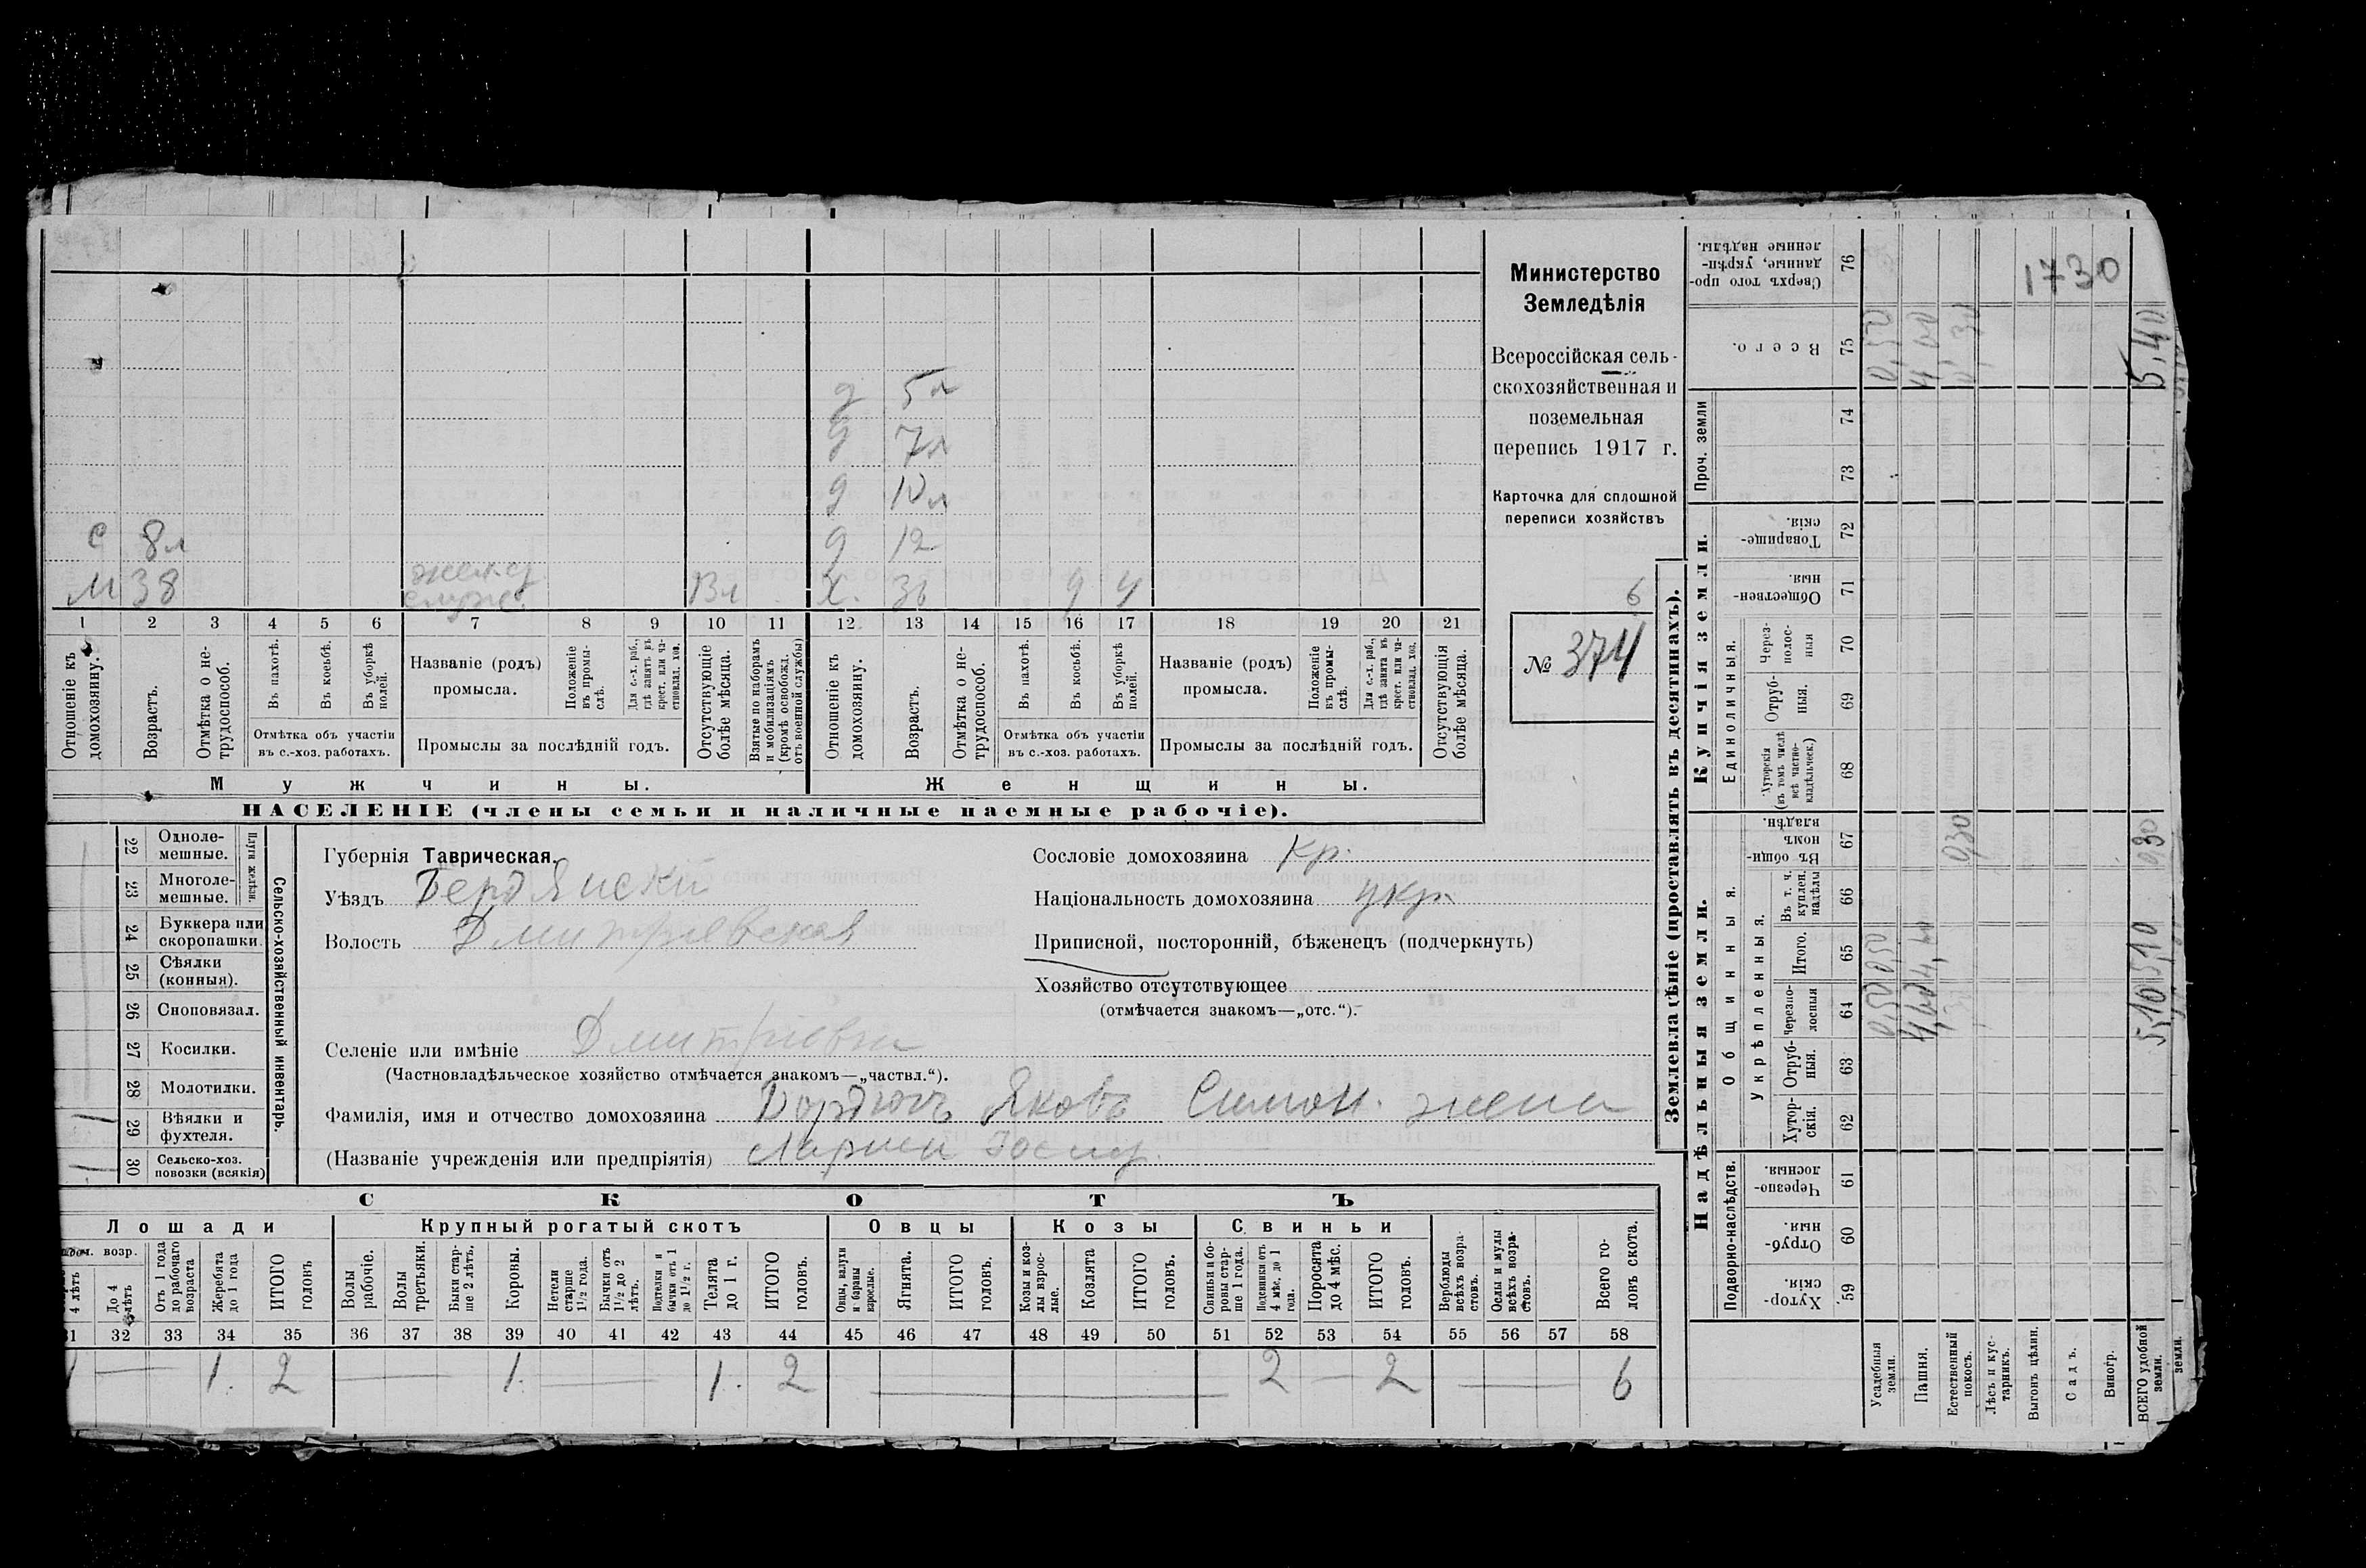 Министерство
Земледѣлія
Всероссійская сель-
скохозяйственная и
поземельная
перепись 1917 г.
Карточка для сплошной
переписи хозяйствъ
6
№ 374
д 5 л
д 7 л
д 10 л
с 8 л д 12
М 38 служ. 13 л Х. 36 ч ч
1 2 3 4 5 6 7 8 9 10 11 12 13 14 15 16 17 18 19 20 21
Отношеніе къ домохозяину.
Возрастъ.
Отмѣтка о не-трудоспособ.
Въ пахотѣ.
Въ косьбѣ.
Въ уборкѣ полей.
Отмѣтка объ участіи въ с.-хоз. работахъ.
Названіе (родъ) промысла.
Положеніе въ промы-слѣ.
Для с.-х. раб., гдѣ занятъ въ крест. или ча-стновлад. хоз.
Промыслы за послѣдній годъ.
Отсутствующіе болѣе мѣсяца.
Взятые по наборамъ и мобилизаціямъ (кромѣ освобожд. отъ военной службы)
Отношеніе къ домохозяину.
Возрастъ.
Отмѣтка о не-трудоспособ.
Въ пахотѣ.
Въ косьбѣ.
Въ уборкѣ полей.
Отмѣтка объ участіи въ с.-хоз. работахъ.
Названіе (родъ) промысла.
Положеніе въ промы-слѣ.
Для с.-х. раб., гдѣ занята въ крест. или ча-стновлад. хоз.
Промыслы за послѣдній годъ.
Отсутствующія болѣе мѣсяца.
Мужчины. Женщины.
НАСЕЛЕНІЕ (члены семьи и наличные наемные рабочіе).
22 Одноле-мешные.
23 Многоле-мешные.
Плуги желѣзн.
24 Буккера или скоропашки.
25 Сѣялки (конныя).
26 Сноповязал.
27 Косилки.
28 Молотилки.
29 Вѣялки и фухтеля. 1
30 Сельско-хоз. повозки (всякія) 1
Сельско-хозяйственный инвентарь.
Губернія Таврическая.
Уѣздъ Бердянскій
Волость Дмитріевская
Сословіе домохозяина кр.
Національность домохозяина укр
Приписной, посторонній, бѣженецъ (подчеркнуть)
Хозяйство отсутствующее
(отмѣчается знакомъ—„отс.“).
Селеніе или имѣніе Дмитріевка
(Частновладѣльческое хозяйство отмѣчается знакомъ—„частвл.“).
Фамилія, имя и отчество домохозяина Яковъ Симон. жена
(Названіе учрежденія или предпріятія)
СКОТЪ
Лошади Крупный рогатый скотъ Овцы Козы Свиньи
4 лѣтъ
До 4 лѣтъ
Отъ 1 года до рабочаго возраста
Жеребята до 1 года
ИТОГО головъ
Волы рабочіе.
Волы третьяки.
Быки стар-ше 2 лѣтъ.
Коровы.
Нетели старше 1½ года.
Бычки отъ 1½ до 2 лѣтъ.
Подтелки и бычки отъ 1 до 1½ г.
Телята до 1 г.
ИТОГО головъ.
Овцы, валухи и бараны взрослые.
Ягнята.
ИТОГО головъ.
Козы и коз-лы взрос-лые.
Козлята
ИТОГО головъ.
Свиньи и бо-ровы стар-ше 1 года.
Подсвинки отъ 4 мѣс. до 1 года.
Поросята до 4 мѣс.
ИТОГО головъ.
Верблюды всѣхъ возра-стовъ.
Ослы и мулы всѣхъ возра-стовъ.
Всего го-ловъ скота.
31 32 33 34 35 36 37 38 39 40 41 42 43 44 45 46 47 48 49 50 51 52 53 54 55 56 57 58
1 — 1. 2 — 1. — 1. 2 — 2 — 2 — 6
Землевладѣніе (проставлять въ десятинахъ).
Купчія земли.
Надѣльныя земли.
Проч. земли
Единоличныя.
Общинныя.
Укрѣпленныя.
Подворно-наслѣдств.
76 Сверхъ того про-данные, укрѣп-ленные надѣлы.
75 Всего.
74
73
72 Товарище-скія.
71 Обществен-ныя.
70 Через-полос-ныя
69 Отруб-ныя.
68 Хуторскія (въ томъ числѣ всѣ частно-владѣльческ.)
67 Въ общин-номъ владѣн.
66 Въ т. ч. куплен. надѣлы
65 Итого.
64 Черезпо-лосныя
63 Отруб-ныя.
62 Хутор-скія.
61 Черезпо-лосныя.
60 Отруб-ныя.
59 Хутор-скія.
Усадебныя земли. 0,50 0,50 0,50
Пашня. 4,60 4,60
Естественный покосъ. 0,30 0,30
Лѣсъ и кус-тарникъ.
Выгонъ цѣлин.
Садъ.
Виногр.
ВСЕГО удобной земли. 5,10 5,10 0,30 5,40
земли.
1730